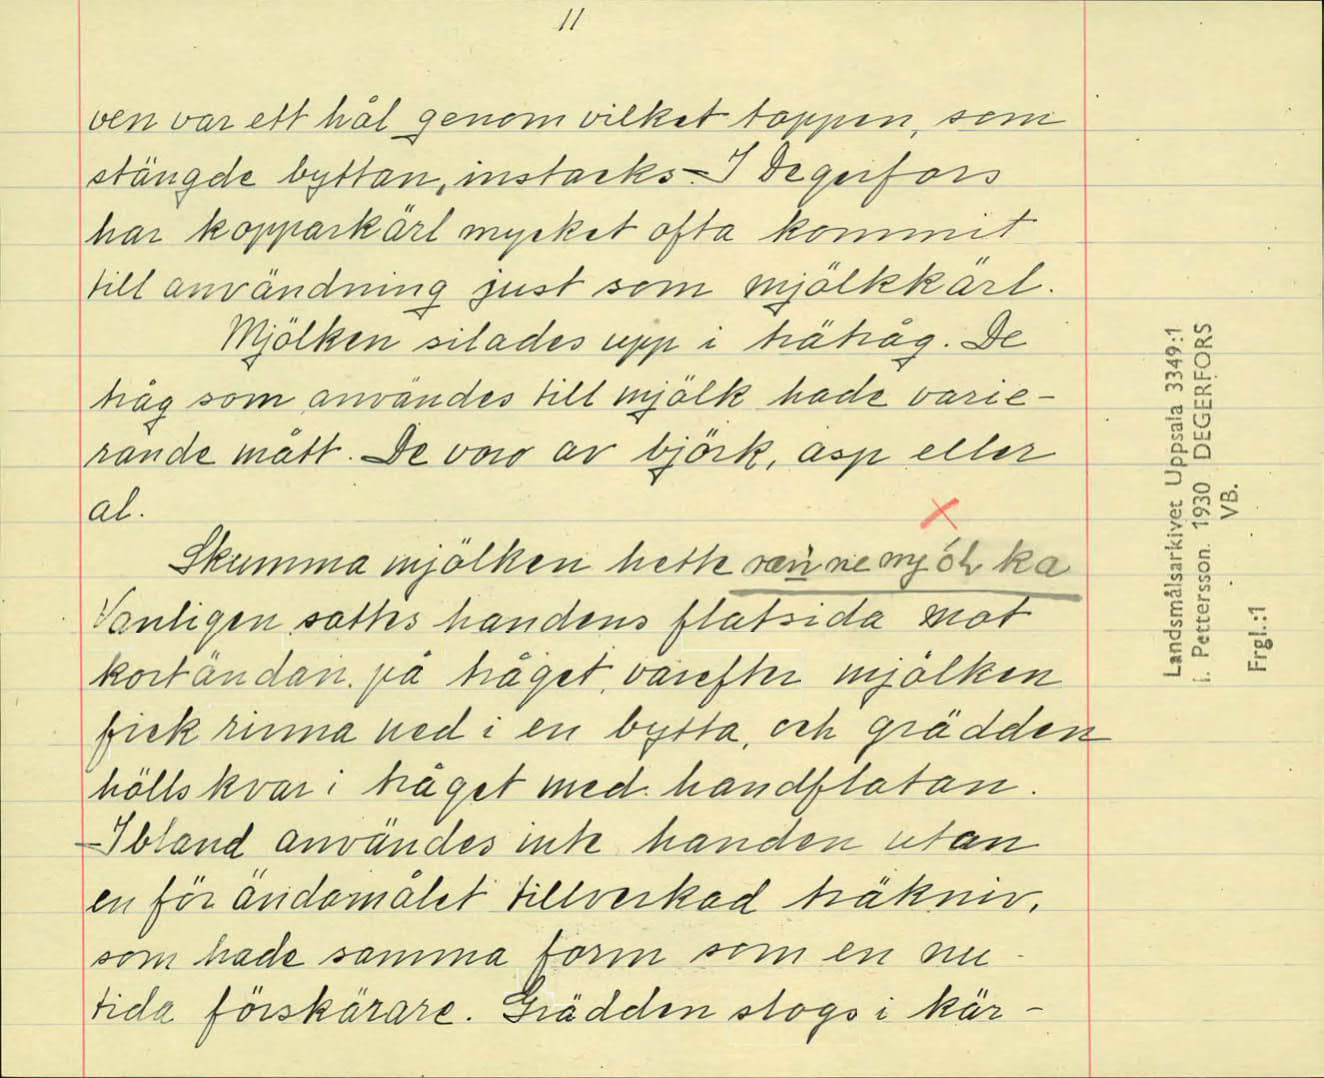 11
ven var ett hål genom vilket tappen, som
stängde byttan, instacks. - I Degerfors
har kopparkärl mycket ofta kommit
till användning just som mjölkkärl.
Mjölken silades upp i trätråg. De
tråg som användes till mjölk hade varie-
rande mått. De voro av björk, asp eller
al.
Skumma mjölken hette
Vanligen sattes handens flatsida mot
kortändan på tråget, varefter mjölken
fick rinna ned i en bytta, och grädden
hölls kvar i tråget med handflatan.
- Ibland användes inte handen utan
en för ändamålet tillverkad träkniv,
som hade samma form som en nu-
tida förskärare. Grädden slogs i kär-
Landsmålsarkivet Uppsala 3349:1
i. Pettersson. 1930 DEGERFORS
VB.
Frgl.:1